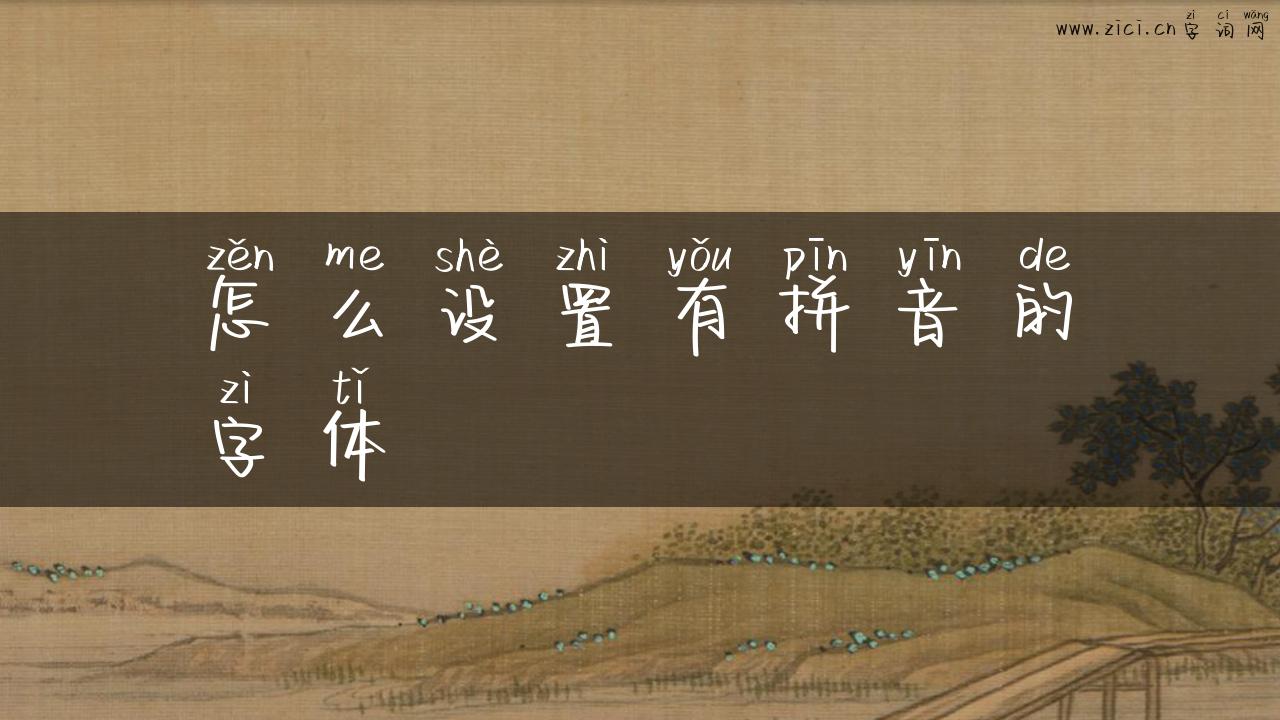 zì cí wǎng
www.zici.cn字词网
zěn me shè zhì yǒu pīn yīn de
怎么设置有拼音的
zì tǐ
字体